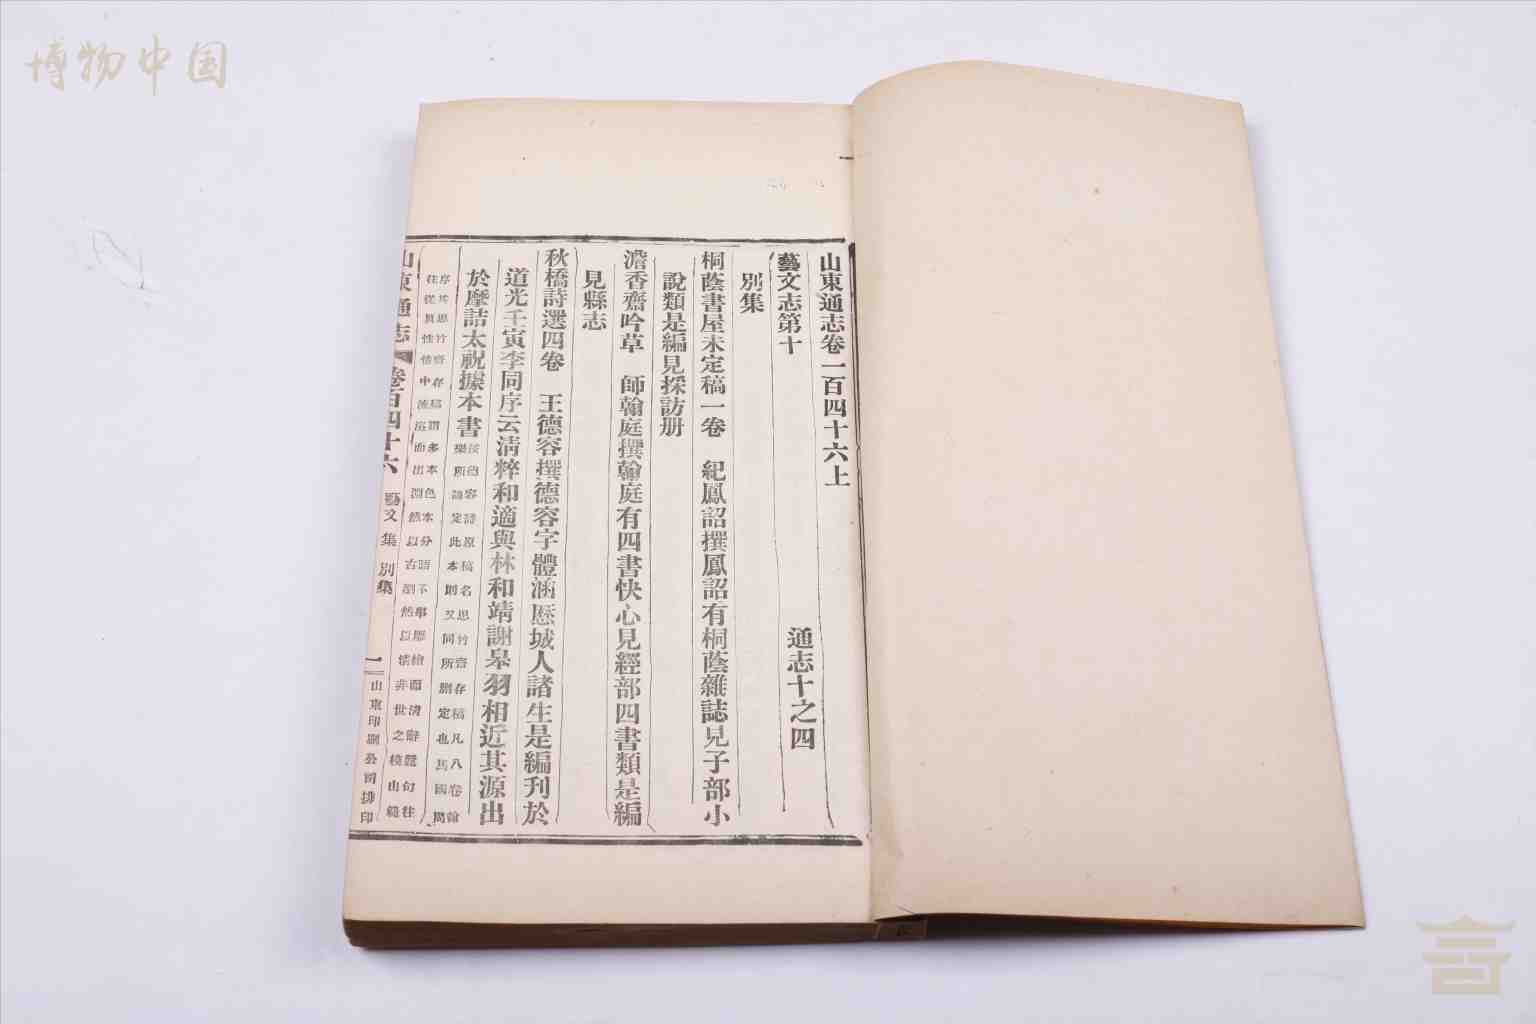 博物中国
山東通志卷一百四十六上
藝文志第十
通志十之四
別集
桐蔭書屋未定稿一卷 紀鳳詔撰鳳詔有桐蔭雜誌見子部小
說類是編見採訪册
澹香齋吟草 師翰庭撰翰庭有四書快心見經部四書類是編
見縣志
秋橋詩選四卷 王德容撰德容字體涵歷城人諸生是編刋於
道光壬寅李同序云清粹和適與林和靖謝皋羽相近其源出
於摩詰太祝據本書
按德容詩原稿名思竹齋存稿凡八卷翰
樂所詩定此本則又同所刪定也其國
序其思竹齋存稿謂多本色本分語不
往從眞性情中流溢而出淵然以古
然以
非世之
山東通志 卷百四十六 藝文 集 別集
一
山東印刷公司排印